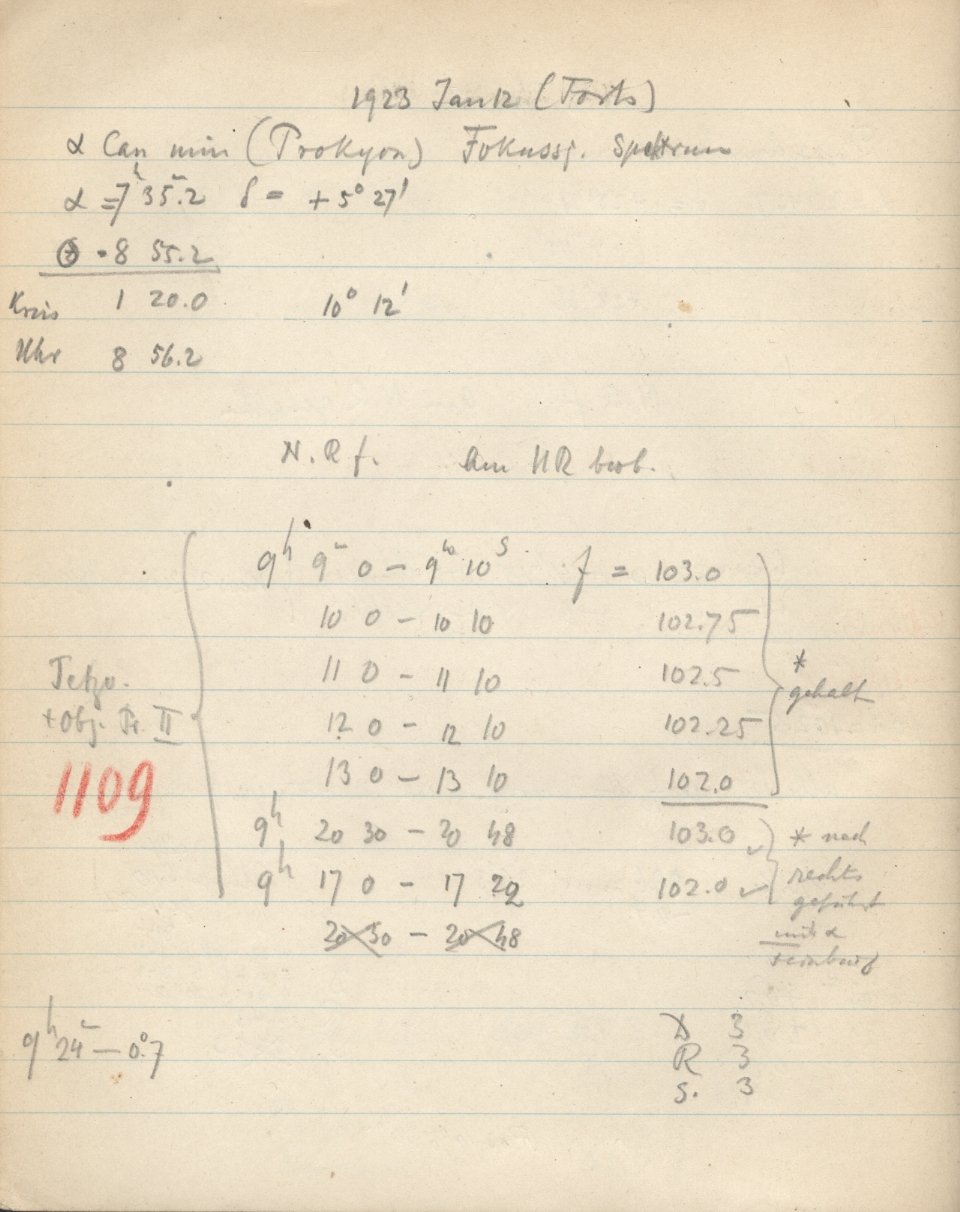 1923 Jan 12 (Forts)
α Can min (Prokyon) Fokussg. Spektrum
α = 7ʰ 35ᵐ.2 δ = +5° 27'
8 55.2
Kreis 1 20.0 10° 12'
Uhr 8 56.2
N. R f. Am HR beob.
9ʰ 9ᵐ 0 – 9ᵐ 10ˢ f = 103.0
10 0 – 10 10 102.75
11 0 – 11 10 102.5
12 0 – 12 10 102.25
13 0 – 13 10 102.0
* gehalt
+ Obj. Pr. II
1109
9ʰ 20 30 – 20 48 103.0 ✓
9ʰ 17 0 – 17 22 102.0 ✓
* nach
rechts
geführt
mit α
Feinbewg
20 30 – 20 48
9ʰ 24ᵐ – 0°.7
D 3
R 3
S. 3